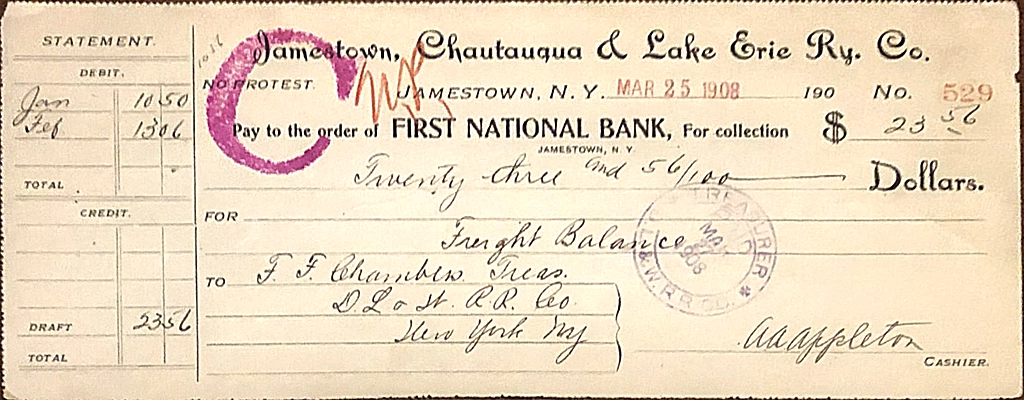 STATEMENT.
DEBIT.
Jan 10 50
Feb 13 06
TOTAL
CREDIT.
DRAFT 23 56
TOTAL
Jamestown, Chautauqua & Lake Erie Ry. Co.
NO PROTEST.
JAMESTOWN, N. Y. MAR 25 1908 190 No. 529
Pay to the order of FIRST NATIONAL BANK, For collection $ 23 56
JAMESTOWN, N. Y.
Twenty three and 56/100 Dollars.
FOR
Freight Balance
TO F. F. Chambers. Treas.
D. L & W. R. R. Co.
New York NY
TREASURER
PAID
MAR
1908
D.L. & W. R. R. CO.
AA Appleton
CASHIER.